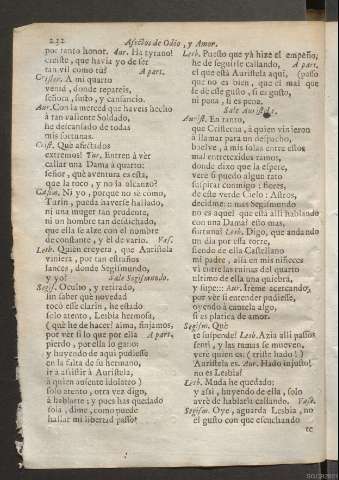 232
Afectos de Odio, y Amor.
por tanto honor. Aur. Ha tyrano!
creiste, que havia yo de ser
tan vil como tu? A part.
Crist. A mi quarto
venid, donde repareis,
señora, susto, y cansancio.
Aur. Con la merced que haveis hecho
à tan valiente Soldado,
he descansado de todas
mis fortunas.
Crist. Què afectados
extremos! Tur. Entren à vèr
callar una Dama à quatro:
señor, què aventura es esta,
que la toco, y no la alcanzo?
Casim. Ni yo, porque no sè como,
Turin, pueda haverse hallado,
ni una muger tan prudente,
ni un hombre tan desdichado,
que ella se alze con el nombre
de constante, y èl de vario. Vas.
Lesb. Quièn creyera, que Auristela
viniera, por tan estraños
lances, donde Segismundo,
y yo! Sale Segismundo.
Segis. Oculto, y retirado,
sin saber què novedad
tocò esse clarin, he estado
solo atento, Lesbia hermosa,
( què he de hacer! aima, finjamos,
por vèr si lo que por ella A part.
pierdo, por ella lo gano:
y huyendo de aqui pudiesse
en la falta de su hermano,
ir à assistir à Auristela,
à quien ausente idolatro )
solo atento, otra vez digo,
à hablarte; y pues has quedado
sola, dime, como puede
hallar mi libertad passo?
Lesb. Puesto que yà hize el empeño,
he de seguirle callando, A part.
el que està Auristela aqui, (puesto
que no es bien, que el mal que
se de este gusto, si es gusto,
ni pena, si es pena.
Sale Auristela.
Aurist. En tanto,
que Cristerna, à quien vinieron
à llamar para un despacho,
buelve, à mis solas entre estos
mal entretexidos ramos,
donde dixo que la espere,
verè si puedo algun rato
suspirar conmigo: flores,
de este verde Cielo: Astros,
decidme:: mas Segismundo
no es aquel que està alli hablando
con una Dama? esto mas,
fortuna! Lesb. Digo, que andando
un dia por esta torre,
siendo de ella Castellano
mi padre, allà en mis niñeces
vi entre las ruinas del quarto
ultimo de ella una quiebra,
y supe::: Aur. Irème acercando,
por vèr si entender pudiesse,
oyendo à cautela algo,
si es platica de amor.
Segism. Què
te suspende? Lesb. Azia alli passos
sentì, y las ramas se mueven,
verè quien es: ( triste hado ! )
Auristela es. Aur. Hado injusto!
no es Lesbia?
Lesb. Muda he quedado;
y assi, huyendo de ella, solo
avrè de hablarla callando. Vase.
Segism. Oye, aguarda Lesbia, no
el gusto con que escuchando
te